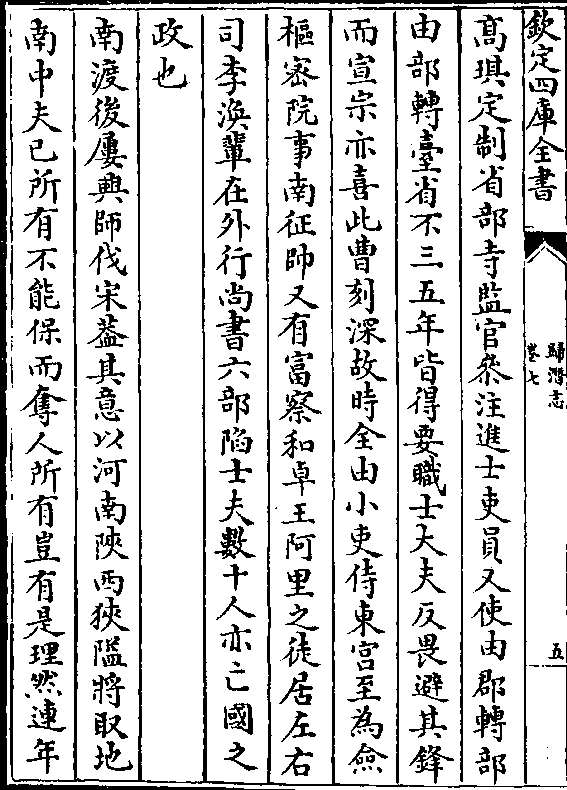 欽定四庫全書
歸潛志
卷七
五
髙琪定制省部寺監官叅注進士吏員又使由郡轉部
由部轉臺省不三五年皆得要職士大夫反畏避其鋒
而宣宗亦喜此曹刻深故時全由小吏侍東宫至為僉
樞宻院事南征帥又有富察和卓王阿里之徒居左右
司李渙輩在外行尚書六部陷士夫數十人亦亡國之
政也
南渡後屢興師伐宋葢其意以河南陜西狹隘將取地
南中夫已所有不能保而奪人所有豈有是理然連年